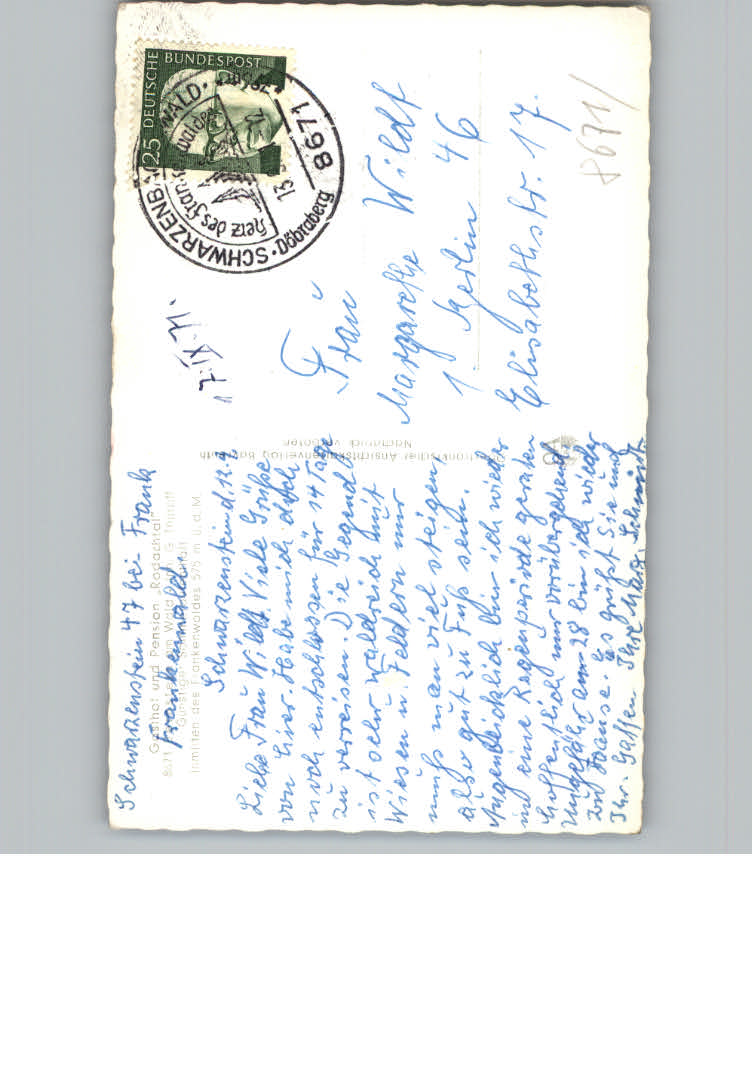 Schwarzenstein 47 bei Frank
Frankenwald
Gasthof und Pension „Rodachtal"
Inmitten des Frankenwaldes 575 m ü. d. M.
Schwarzenstein d. 12.
Liebe Frau Wildt Viele Grüße
von hier. Habe mich doch
noch entschlossen für 14 Tage
zu verreisen. Die Gegend
ist sehr waldreich mit
Wiesen u. Feldern nur
muß man viel steigen,
also gut zu Fuß sein.
Augenblicklich bin ich wieder
in eine Regenperiode geraten
hoffentlich nur vorübergehend.
Ungefähr am 28 bin ich wieder
zu Hause. Es grüßt Sie und
Ihr. Gatten Ihre Marg. Schmidt
Ansichtskartenverlag Bayreuth
Nachdruck verboten
DEUTSCHE BUNDESPOST
25
SCHWARZENB WALD
Herz des Frankenwaldes
Döbraberg
8671
17. IX. 71.
Frau
Margarethe Wildt
1 Berlin 46
Elisabethstr. 17.
8671/